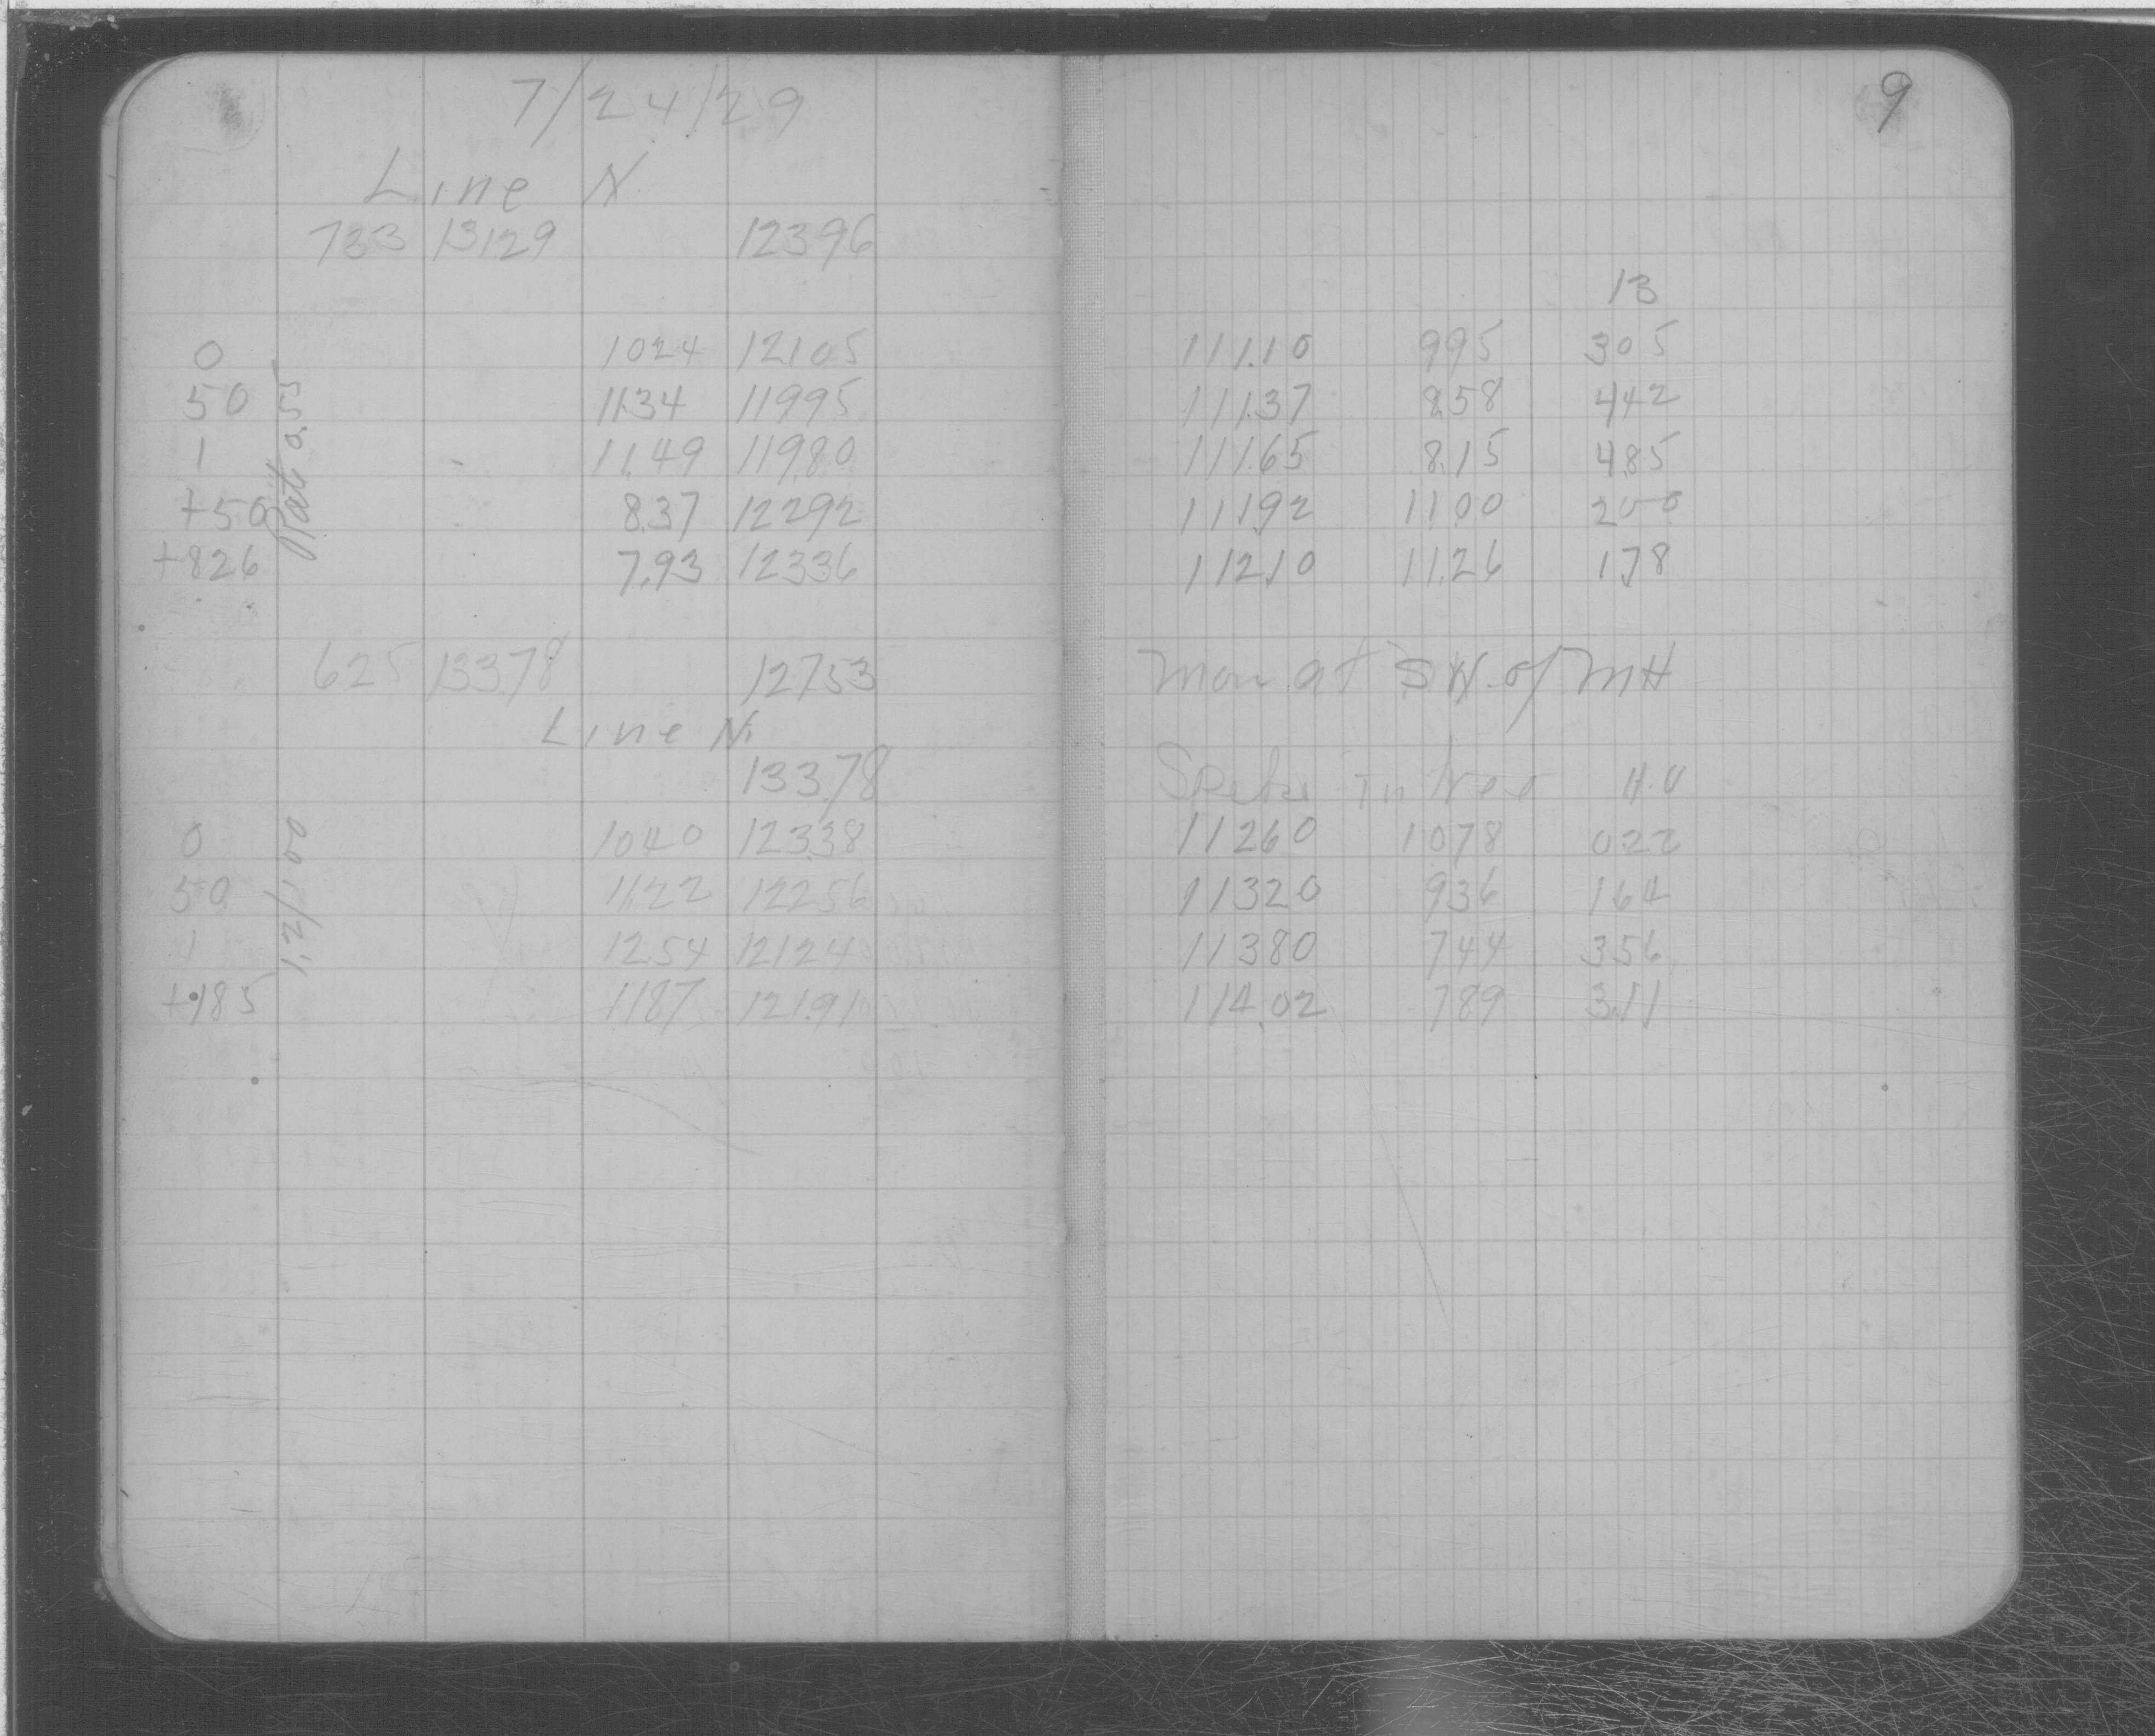 7/24/29
Line N
733 13129 12396
0 1024 12105
50 11.34 11995
1 11.49 11980
+50 8.37 12292
+826 7.93 12336
0.55
625 13378 12753
Line N
13378
0 1040 12338
50 11.22 12256
1 1254 12124
+185 1187 121.91
1.2/100
9
13
111.10 995 305
111.37 8.58 442
111.65 8.15 485
11192 1100 200
112.10 11.26 1.78
Mon. at SW. of MH
in
11260 1078 022
11320 936 164
11380 744 356
114.02 789 3.11